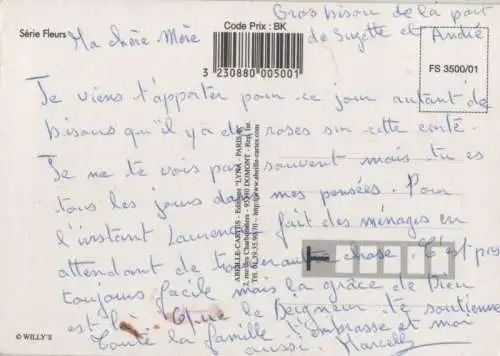 Gros bison de la part
de Suzette et André
Série Fleurs
Code Prix : BK
Ma chère Mère
3 230880 005001
FS 3500/01
Je viens t'apporter pour ce jour autant de
bisous qu'il y a de roses sur cette carte.
Je ne te vois pas souvent mais tu es
tous les jours dans mes pensées. Pour
l'instant Laurence fait des ménages en
attendant de trouver autre chose. C'est pas
toujours facile mais la grâce de Dieu
est là. Que le Seigneur te soutienne
Toute la famille t'embrasse et moi
aussi. Marcelle
ABEILLE-CARTES - Editions "LYNA - PARIS"
2, rue des Charbonniers - 95330 DOMONT - Rep. Int.
http://www.abeille-cartes.com
© WILLY'S